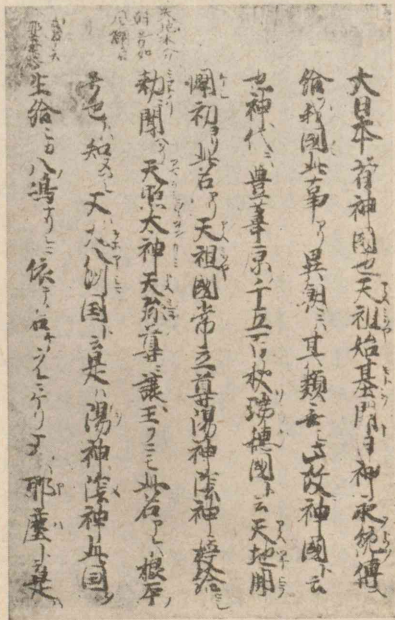 大日本者神國也天祖始基開日神永統傳
給我國此事アリ異朝ニハ其類无シ此故神國ト云
也神代ニハ豊葦原ノ千五百秋瑞穂國ト云天地開
闢初ヨリ此名アリ天祖國常立尊陽神陰神ニ授給シ
勅ニ聞タリ天照太神天孫尊ニ譲玉フニモ此名アレハ根本ノ
号也トハ知ヌヘシ又ハ大八洲国ト云是ハ陽神陰神此国ヲ
生給シカ八嶋ナリシニ依テ名ケラレニケリ又ハ耶麻土ト云是ハ